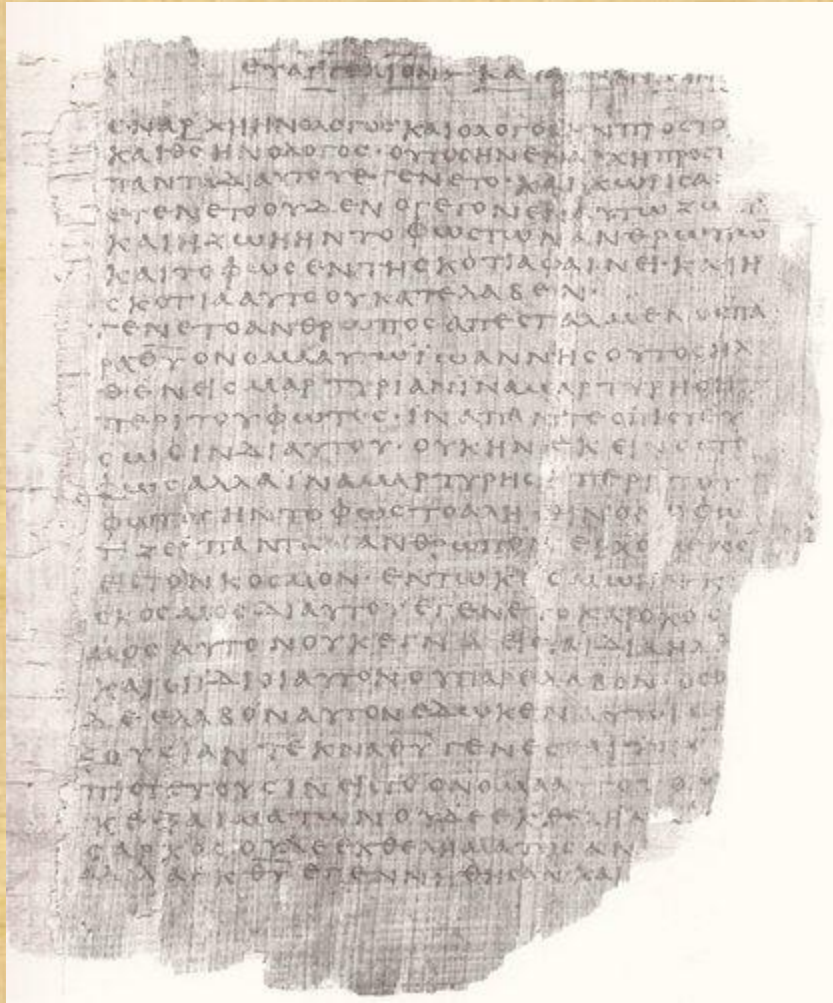 ΕΥΑΓΓΕΛΙΟΝ ΚΑΤΑ
ΕΝΑΡΧΗΗΝΟΛΟΓΟϹΚΑΙΟΛΟΓΟϹΗΝΠΡΟϹΤΟ
ΚΑΙΘ̅Ϲ̅ΗΝΟΛΟΓΟϹ·ΟΥΤΟϹΗΝΕΝΑΡΧΗΠΡΟϹΤ
ΠΑΝΤΑΔΙΑΥΤΟΥΕΓΕΝΕΤΟ·ΚΑΙΧΩΡΙϹΑ
ΕΓΕΝΕΤΟΟΥΔΕΝΟΓΕΓΟΝΕΝΑΥΤΩΖΩ
ΚΑΙΗΖΩΗΗΝΤΟΦΩϹΤΩΝΑΝΘΡΩΠΩ
ΚΑΙΤΟΦΩϹΕΝΤΗϹΚΟΤΙΑΦΑΙΝΕΙ·ΚΑΙΗ
ϹΚΟΤΙΑΑΥΤΟΟΥΚΑΤΕΛΑΒΕΝ·
ΓΕΝΕΤΟΑΝΘΡΩΠΟϹΑΠΕϹΤΑΛΜΕΝΟϹΠΑ
ΡΑΘ̅Υ̅ΟΝΟΜΑΑΥΤΩΪΩΑΝΝΗϹΟΥΤΟϹΗΛ
ΘΕΝΕΙϹΜΑΡΤΥΡΙΑΝΙΝΑΜΑΡΤΥΡΗϹΗ
ΠΕΡΙΤΟΥΦΩΤΟϹ·ΙΝΑΠΑΝΤΕϹΠΙϹΤΕΥ
ϹΩϹΙΝΔΙΑΥΤΟΥ·ΟΥΚΗΝΕΚΕΙΝΟϹΤΟ
ΦΩϹΑΛΛΑΙΝΑΜΑΡΤΥΡΗϹΗΠΕΡΙΤΟΥ
ΦΩΤΟϹΗΝΤΟΦΩϹΤΟΑΛΗΘΙΝΟΝΟΦΩ
ΤΙΖΕΙΠΑΝΤΑΑΝΘΡΩΠΟΝΕΡΧΟΜΕΝΟ
ΕΙϹΤΟΝΚΟϹΜΟΝ·ΕΝΤΩΚΟϹΜΩΗΝΚ
ΟΚΟϹΜΟϹΔΙΑΥΤΟΥΕΓΕΝΕΤΟΚΑΙΟΚΟϹ
ΜΟϹΑΥΤΟΝΟΥΚΕΓΝΩΕΙϹΤΑΙΔΙΑΗΛΘ
ΚΑΙΟΙΪΔΙΟΙΑΥΤΟΝΟΥΠΑΡΕΛΑΒΟΝ·ΟϹΟ
ΔΕΕΛΑΒΟΝΑΥΤΟΝΕΔΩΚΕΝΑΥΤΟΙϹΕ
ΞΟΥϹΙΑΝΤΕΚΝΑΘ̅Υ̅ΓΕΝΕϹΘΑΙΤΟΙϹ
ΠΙϹΤΕΥΟΥϹΙΝΕΙϹΤΟΟΝΟΜΑΑΥΤΟΥΟΙ
ΚΕΞΑΙΜΑΤΩΝΟΥΔΕΕΚΘΕΛΗΜΑ
ϹΑΡΚΟϹΟΥΔΕΕΚΘΕΛΗΜΑΤΟϹΑΝ
ΑΛΛΑΕΚΘ̅Υ̅ΕΓΕΝΝΗΘΗϹΑΝΚΑΙ